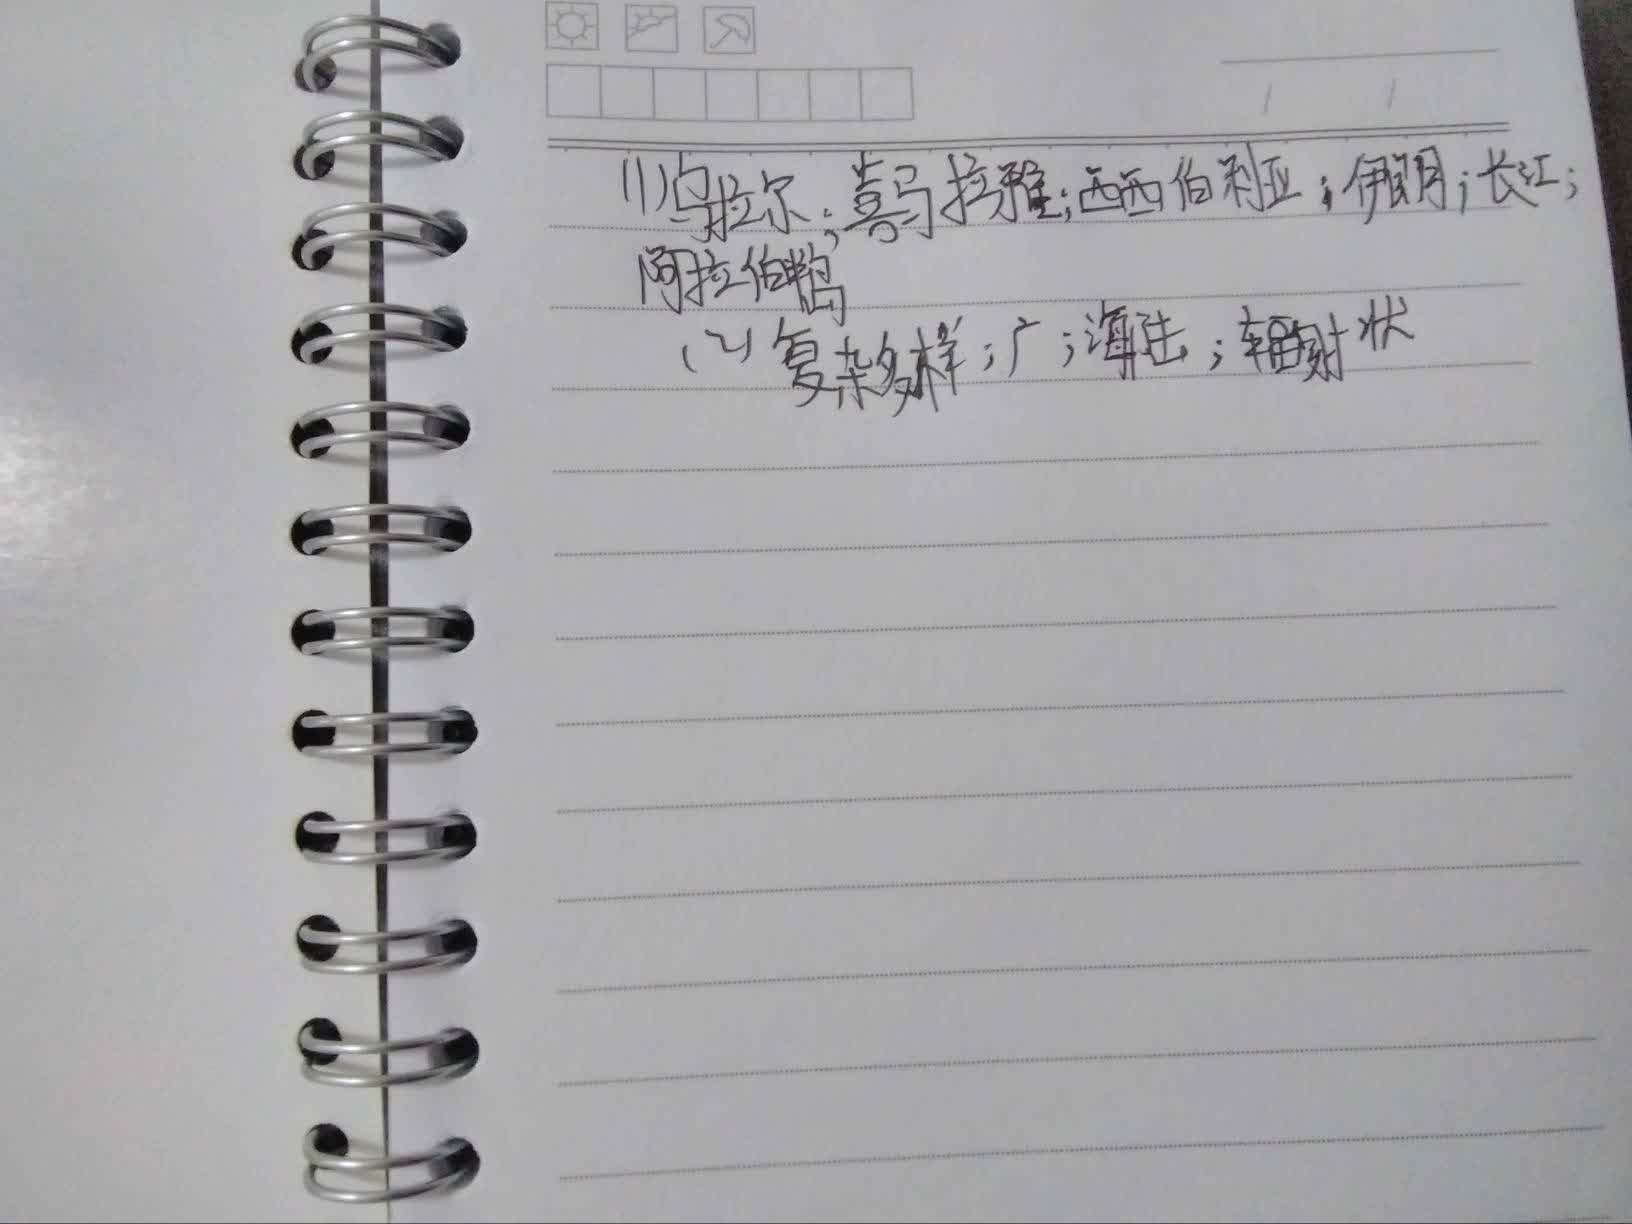 (1)乌拉尔;喜马拉雅;西西伯利亚;伊朗;长江;
阿拉伯
(2)复杂多样;广;海陆;辐射状